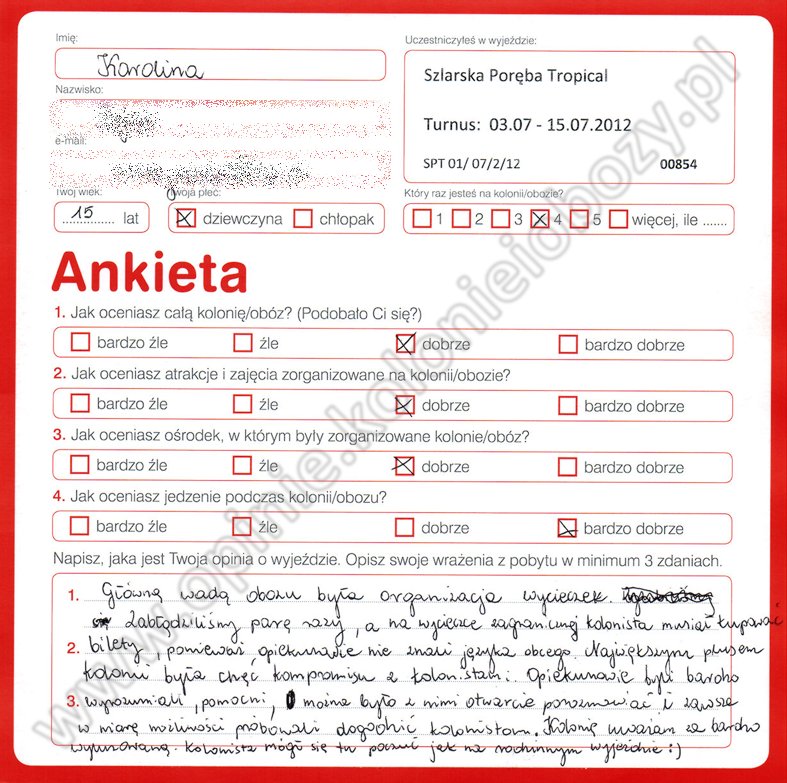 Imię:
Karolina
Nazwisko:
e-mail:
Twój wiek:
15 lat
Twoja płeć:
dziewczyna chłopak
Uczestniczyłeś w wyjeździe:
Szlarska Poręba Tropical
Turnus: 03.07 - 15.07.2012
SPT 01/ 07/2/12 00854
Który raz jesteś na kolonii/obozie?
1 2 3 4 5 więcej, ile .......
Ankieta
1. Jak oceniasz całą kolonię/obóz? (Podobało Ci się?)
bardzo źle źle dobrze bardzo dobrze
2. Jak oceniasz atrakcje i zajęcia zorganizowane na kolonii/obozie?
bardzo źle źle dobrze bardzo dobrze
3. Jak oceniasz ośrodek, w którym były zorganizowane kolonie/obóz?
bardzo źle źle dobrze bardzo dobrze
4. Jak oceniasz jedzenie podczas kolonii/obozu?
bardzo źle źle dobrze bardzo dobrze
Napisz, jaka jest Twoja opinia o wyjeździe. Opisz swoje wrażenia z pobytu w minimum 3 zdaniach.
1. Główną wadą obozu była organizacja wycieczek.
Zabłądziliśmy parę razy, a na wycieczce zagranicznej kolonista musiał kupować
2. bilety, ponieważ opiekunowie nie znali języka obcego. Największym plusem
kolonii była chęć kompromisu z kolonistami. Opiekunowie byli bardzo
3. wyrozumiali, pomocni, można było z nimi otwarcie porozmawiać i zawsze
w miarę możliwości próbowali dogodnić kolonistom. Kolonię uważam za bardzo
wyluzowaną. Kolonista mógł się tu poczuć jak na rodzinnym wyjeździe :)
www.opinie.kolonieiobozy.pl